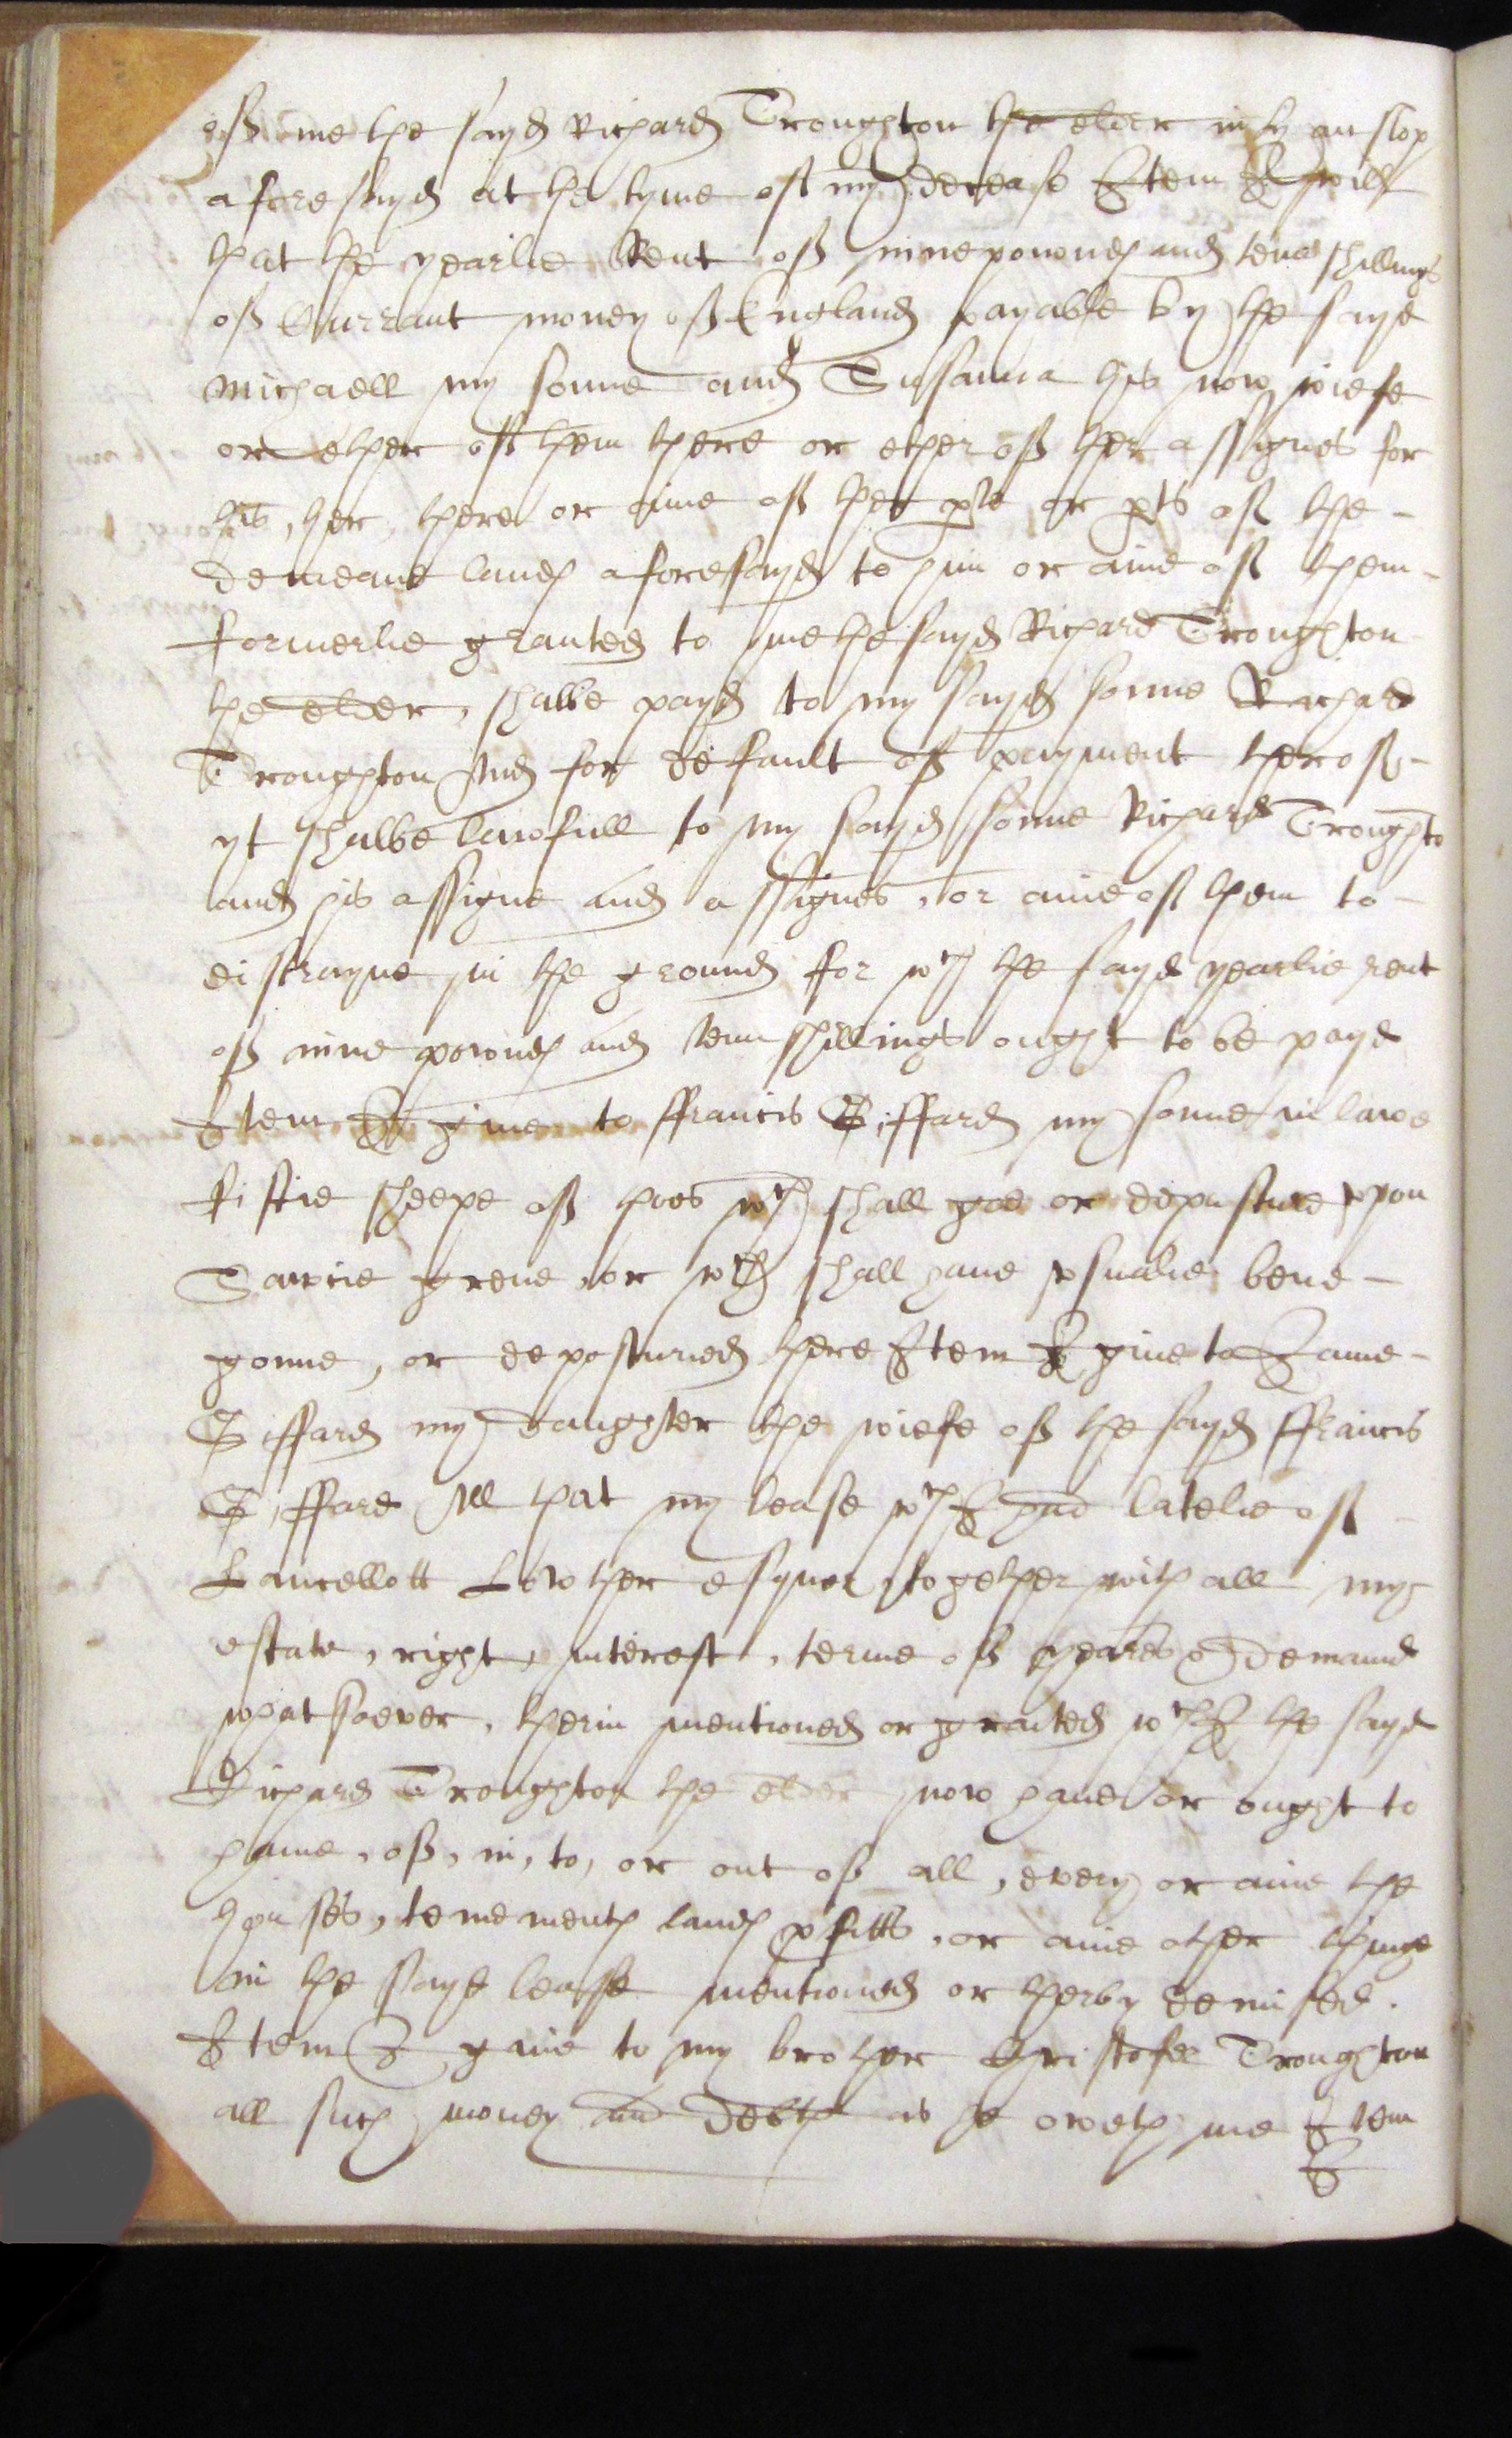 off me the sayd Richard Troughton the elder in Hanslop
aforesayd at the tyme off my decease Item I will
that the yearlie Rent off nine powndes and tenn shillings
off Currant money off England payable by the sayd
Michaell my sonne and Susanna his now wiefe
or ether off them there or ether off ther assignes for
his, her, there or anie off ther pte or pts off the -
demeane landes aforesayd to him or anie off them -
formerlie granted to me the sayd Richard Troughton
the elder, shalbe payd to my sayd sonne Richard
Troughton And for default off payment theroff -
yt shalbe lawfull to my sayd sonne Richard Troughto
and his assigne and assignes, or anie off them to -
distrayne in the ground for wch the sayd yearlie rent
off nine powndes and tenn shillings ought to be payd
Item I giue to ffrancis Giffard my sonne in lawe
fiftie sheepe off thoes wch shall goe or depasture vpon
Sawcie grene, or wch shall haue vsualie bene -
gonne, or depastured there Item I giue to Jane -
Giffard my daughter the wiefe off the sayd ffrancis
Giffard All that my lease wch I had latelie off -
Lancellott Lowther esquier, together with all my
estate, right, interest, terme off yeares & demaund
whatsoever, therin mentioned or granted wch I the sayd
Richard Troughton the elder now haue or ought to
haue, off, in, to, or out off all, every or anie the
houses, tenementes landes pfitts, or anie other thinge
in the sayd lease mentioned or therby demised.
Item I giue to my brother Christofer Troughton
all such money and debtes as he oweth me Item
I